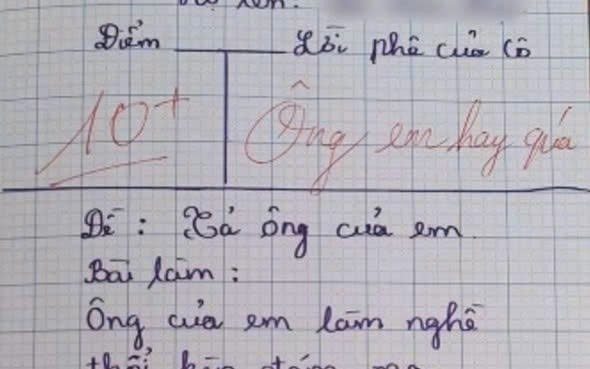 Điểm Lời phê của cô
10+ Ông em hay quá
Đề: Tả ông của em.
Bài làm:
Ông của em làm nghề
thổi kèn đám ma